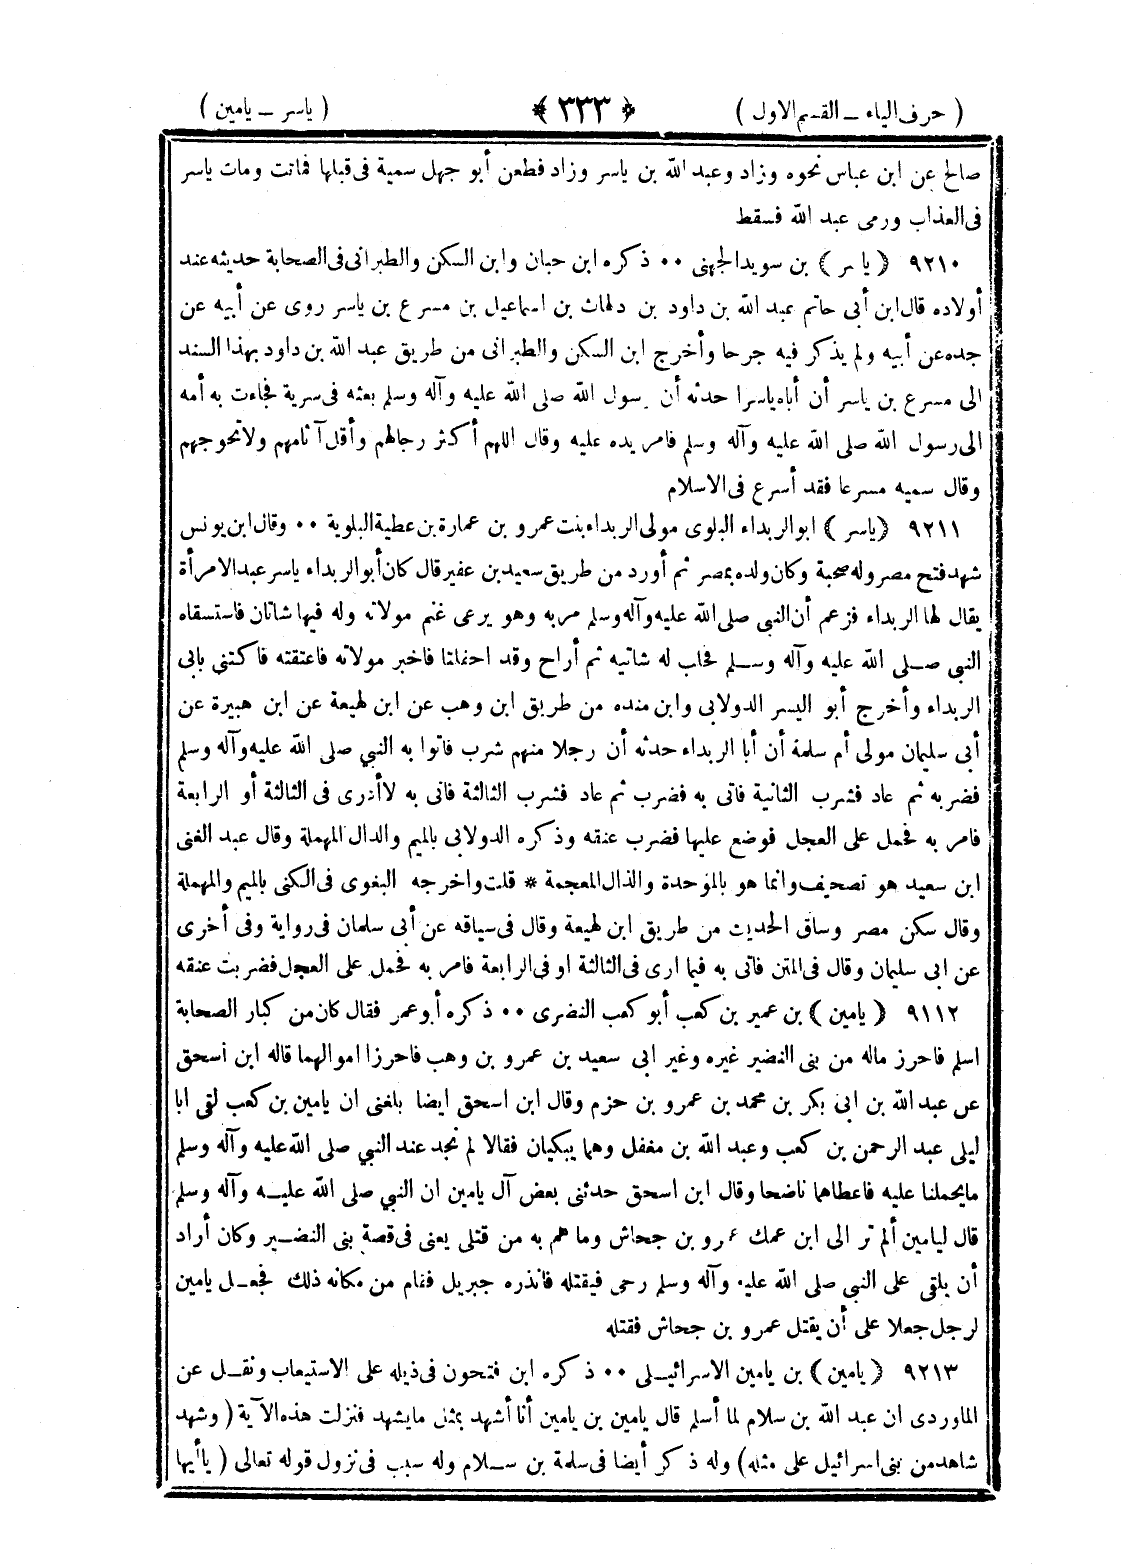 ( حرف الياء ــ القسم الاول ) ﴿ ٣٣٣ ﴾ ( ياسر ــ يامين )
صالح عن ابن عباس نحوه وزاد وعبد الله بن ياسر وزاد فطعن أبو جهل سمية فى قبلها فماتت ومات ياسر
فى العذاب ورمى عبد الله فسقط
٩٢١٠ ( ياسر ) بن سويد الجهنى ٠٠ ذكره ابن حبان وابن السكن والطبرانى فى الصحابة حديثه عند
أولاده قال ابن أبى حاتم عبد الله بن داود بن دلهاث بن اسماعيل بن مسرع بن ياسر روى عن أبيه عن
جده عن أبيه ولم يذكر فيه جرحا وأخرج ابن السكن والطبرانى من طريق عبد الله بن داود بهذا السند
الى مسرع بن ياسر أن أباه ياسرا حدثه أن رسول الله صلى الله عليه وآله وسلم بعثه فى سرية فجاءت به أمه
الى رسول الله صلى الله عليه وآله وسلم فامر يده عليه وقال اللهم أكثر رجالهم وأقل آثامهم ولا تحوجهم
وقال سميه مسرعا فقد أسرع فى الاسلام
٩٢١١ ( ياسر ) ابو الربداء البلوى مولى الربداء بنت عمرو بن عمارة بن عطية البلوية ٠٠ وقال ابن يونس
شهد فتح مصر وله صحبة وكان ولده بمصر ثم أورد من طريق سعيد بن عفير قال كان أبو الربداء ياسر عبد الامرأة
يقال لها الربداء فزعم أن النبى صلى الله عليه وآله وسلم مر به وهو يرعى غنم مولاته وله فيها شاتان فاستسقاه
النبى صلى الله عليه وآله وسلم فحلب له شاتيه ثم أراح وقد احفلتا فاخبر مولاته فاعتقته فاكتنى بابى
الربداء وأخرج أبو اليسر الدولابى وابن منده من طريق ابن وهب عن ابن لهيعة عن ابن هبيرة عن
أبى سليمان مولى أم سلمة أن أبا الربداء حدثه أن رجلا منهم شرب فاتوا به النبي صلى الله عليه وآله وسلم
فضربه ثم عاد فشرب الثانية فاتى به فضرب ثم عاد فشرب الثالثة فاتى به لا أدرى فى الثالثة أو الرابعة
فامر به فحمل على العجل فوضع عليها فضرب عنقه وذكره الدولابى بالميم والدال المهملة وقال عبد الغنى
ابن سعيد هو تصحيف وانما هو بالموحدة والذال المعجمة * قلت واخرجه البغوى فى الكنى بالميم والمهملة
وقال سكن مصر وساق الحديث من طريق ابن لهيعة وقال فى سياقه عن أبى سلمان فى رواية وفى أخرى
عن ابى سليمان وقال فى المتن فاتى به فيما ارى فى الثالثة او فى الرابعة فامر به فحمل على العجل فضربت عنقه
٩١١٢ ( يامين ) بن عمير بن كعب أبو كعب النضرى ٠٠ ذكره أبو عمر فقال كان من كبار الصحابة
اسلم فاحرز ماله من بنى النضير غيره وغير ابى سعيد بن عمرو بن وهب فاحرزا اموالهما قاله ابن اسحق
عن عبد الله بن ابى بكر بن محمد بن عمرو بن حزم وقال ابن اسحق ايضا بلغنى ان يامين بن كعب لقى ابا
ليلى عبد الرحمن بن كعب وعبد الله بن مغفل وهما يبكيان فقالا لم نجد عند النبي صلى الله عليه وآله وسلم
ما يحملنا عليه فاعطاهما ناضحا وقال ابن اسحق حدثنى بعض آل يامين ان النبي صلى الله عليه وآله وسلم
قال ليامين ألم تر الى ابن عمك عمرو بن جحاش وما هم به من قتلى يعنى فى قصة بنى النضير وكان أراد
أن يلقى على النبى صلى الله عليه وآله وسلم رحى فيقتله فانذره جبريل فقام من مكانه ذلك فجعل يامين
لرجل جعلا على أن يقتل عمرو بن جحاش فقتله
٩٢١٣ ( يامين ) بن يامين الاسرائيلى ٠٠ ذكره ابن فتحون فى ذيله على الاستيعاب ونقل عن
الماوردى ان عبد الله بن سلام لما أسلم قال يامين بن يامين أنا أشهد بمثل ما يشهد فنزلت هذه الآية ( وشهد
شاهد من بنى اسرائيل على مثله ) وله ذكر أيضا فى سلمة بن سلام وله سبب فى نزول قوله تعالى ( يا أيها